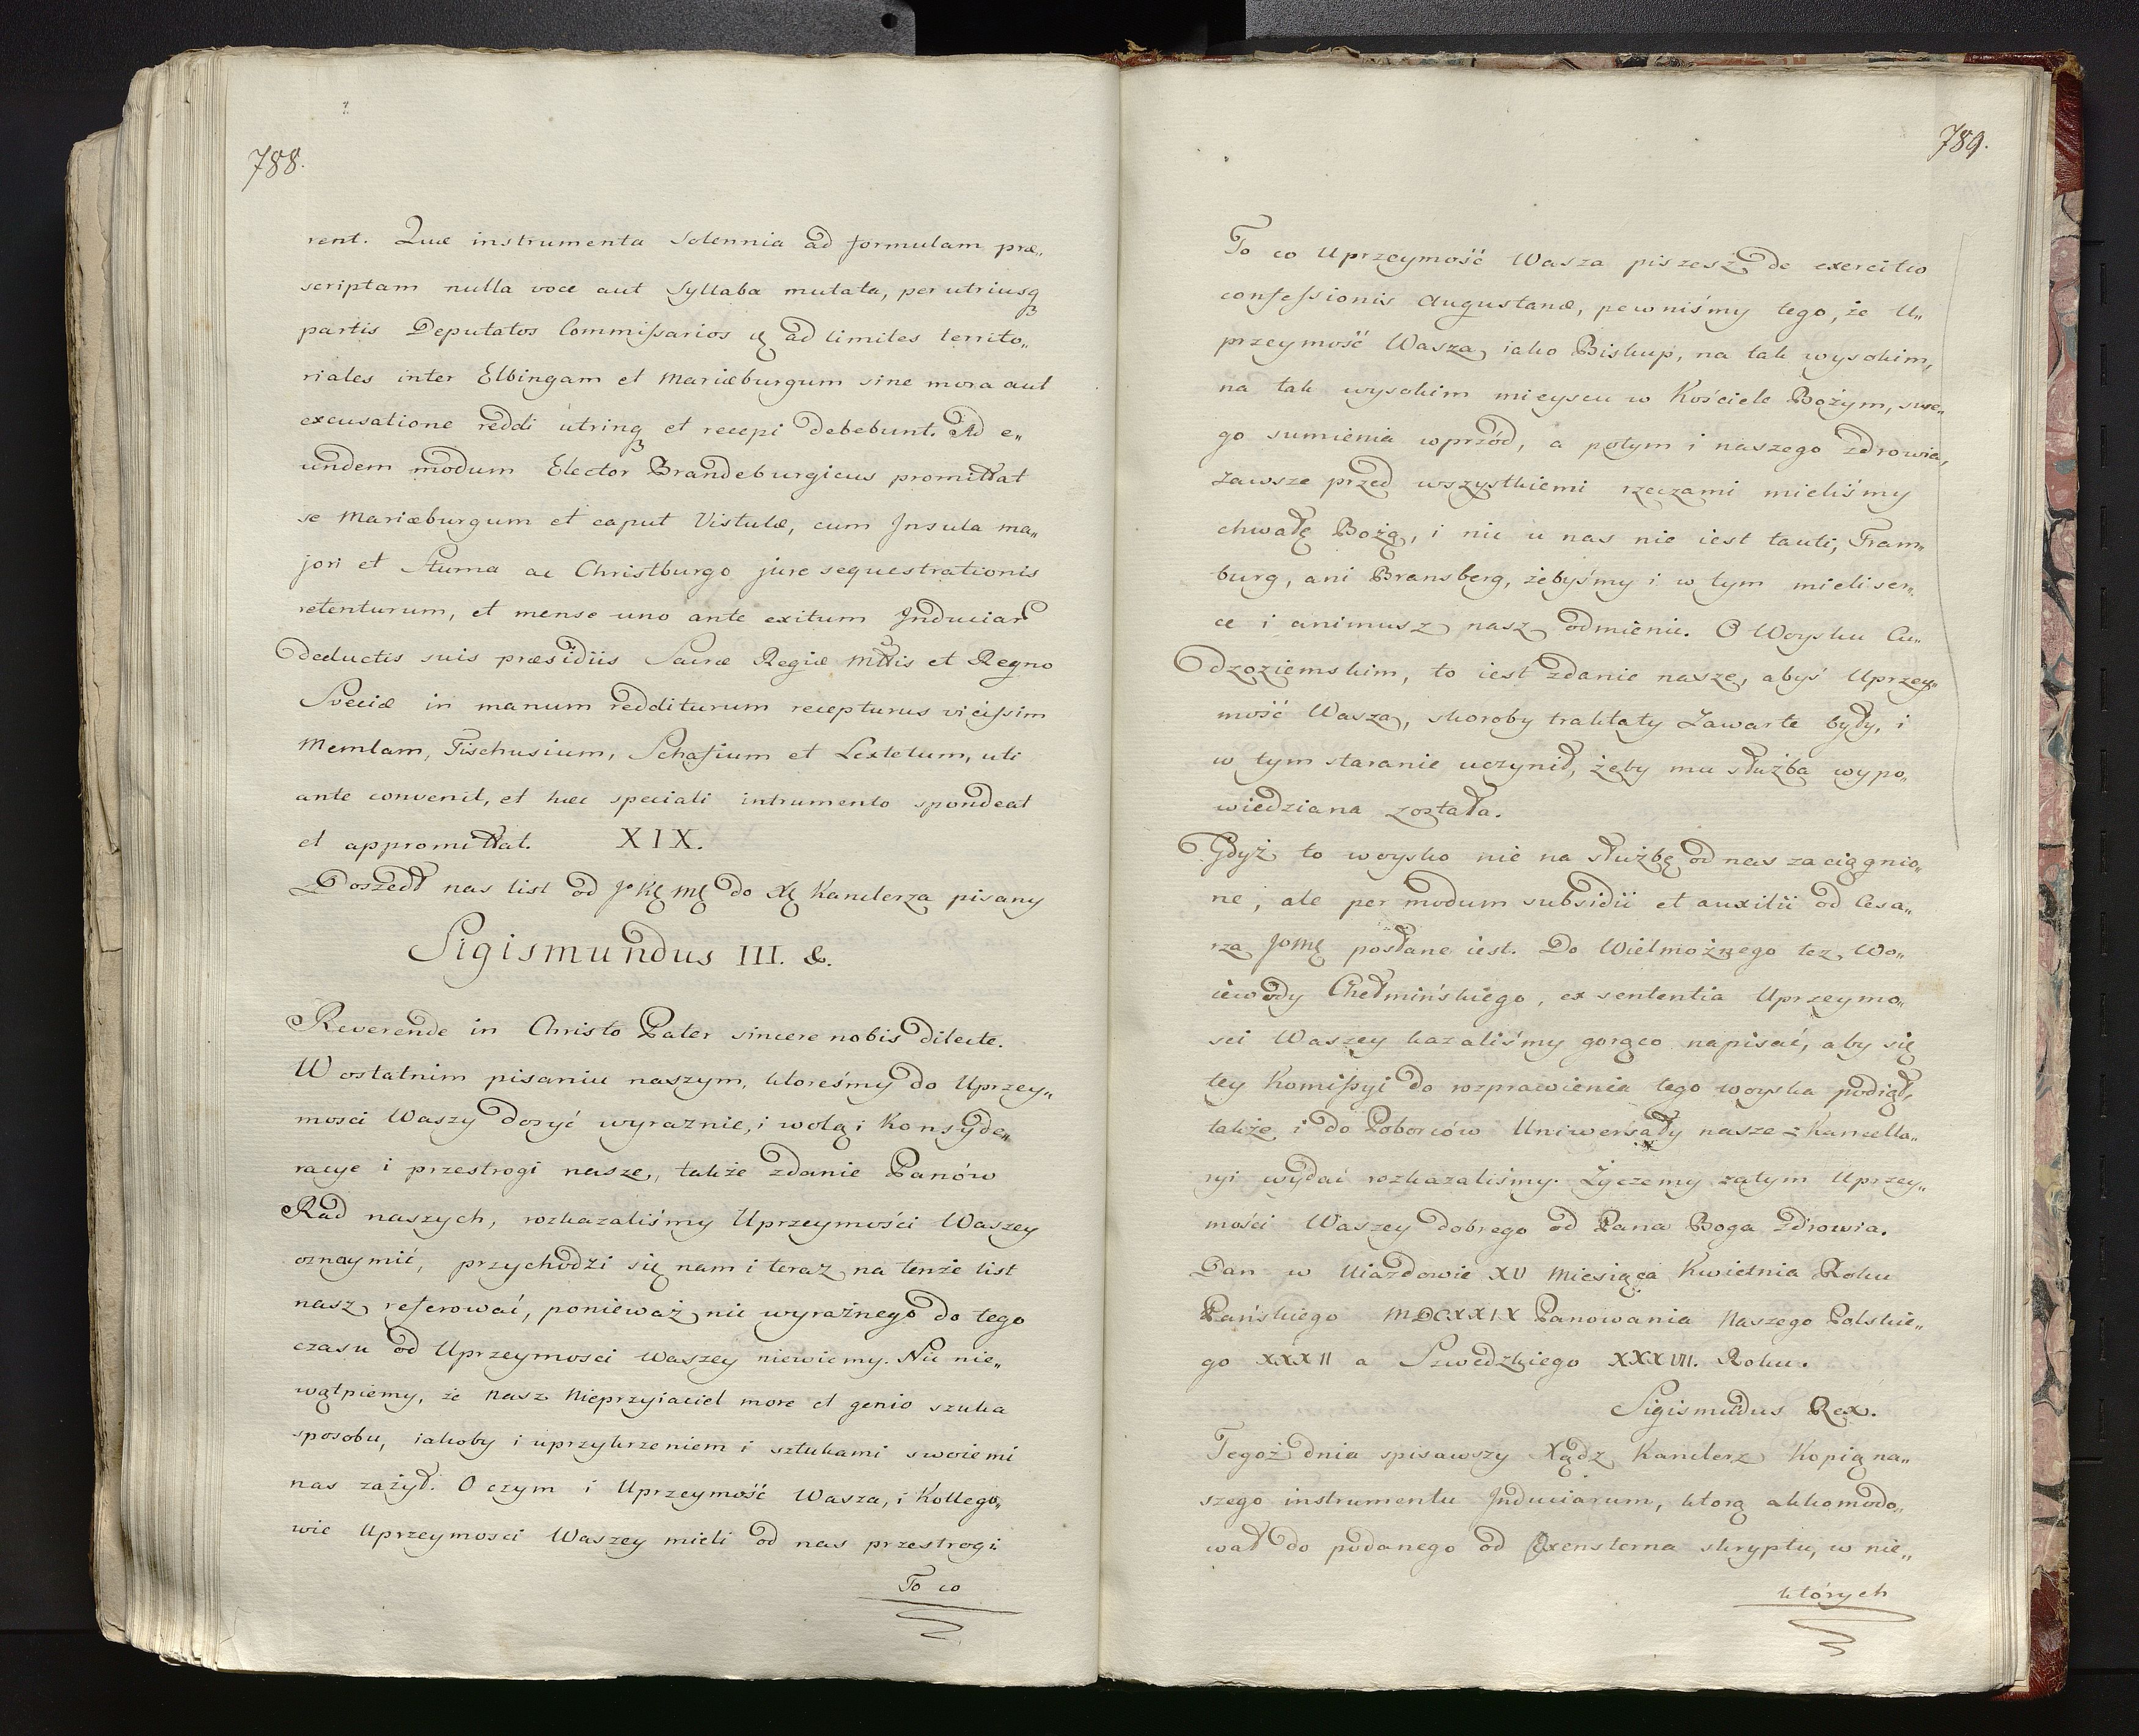 788.
rent. Quæ instrumenta solennia ad formulam præ„
scriptam nulla voce aut Syllaba mutata, per utriusq
partis Deputatos Commissarios ad limites territo„
riales inter Elbingam et Mariæburgum sine mora aut
excusatione reddi utrinq et recepi debebunt. Ad e„
undem modum Elector Brandeburgicus promittat
se Mariæburgum et caput Vistulæ, cum Jnsula ma„
jori et Stuma ac Christburgo jure sequestrationis
retenturum, et mense uno ante exitum Jnduciar
deductis suis præsidiis Sacræ Regiæ Mttis et Regno
Sveciæ in manum redditurum recepturus vicissim
Memlam, Fischusium, Schafium et Lextetum, uti
ante convenit, et hæc speciali intrumento spondeat
et appromittat. XIX.
Doszedł nas list od Jo Kę Mę do Xę Kanclerza pisany
Sigismundus III. &.
Reverende in Christo Pater sincere nobis dilecte.
W ostatnim pisaniu naszym, ktoreśmy do Uprzey„
mosci Waszy dosyć wyraznie, i wolą i Konsyde„
racye i przestrogi nasze, także zdanie Panów
Rad naszych, rozkazaliśmy Uprzeymości Waszey
oznaymić, przychodzi się nam i teraz na tenże list
nasz referować, ponieważ nic wyraźnego do tego
czasu od Uprzeymosci Waszey niewiemy. Nic nie„
wątpiemy, że Nasz Nieprzyiaciel more et genio szuka
sposobu, iakoby i uprzykrzeniem i sztukami swoiemi
nas zażył. O czym i Uprzeymość Wasza, i Kollego„
wie Uprzeymosci Waszey mieli od nas przestrogi
To co
789.
To co Uprzeymość Wasza piszesz de exercitio
confessionis Augustanæ, pewniśmy tego, że U„
przeymość Wasza, iako Biskup, na tak wysokim,
na tak wysokim mieyscu w Kościele Bożym, swe„
go sumienia wprzód, a potym i naszego zdrowia,
zawsze przed wszystkiemi rzeczami mieliśmy
chwałę Bożą, i nic u nas nie iest tanti, Fram„
burg, ani Bransberg, żebyśmy i w tym mieli ser„
ce i animusz nasz odmienic. O Woysku Cu„
dzoziemskim, to iest zdanie nasze, abyś Uprzey„
mość Wasza, skoroby traktaty Zawarte były, i
w tym staranie uczynił, żeby mu służba wypo„
wiedziana została.
Gdyż to woysko nie na służbę od nas zaciągnio„
ne, ale per modum subsidii et auxilii od Cesa„
rza JoMę posłane iest. Do Wielmożnego tez Wo„
iewody Chełmińskiego, ex sententia Uprzeymo„
sci Waszey kazaliśmy gorąco napisać, aby się
tey Komissyi do rozprawienia tego woyska podiął,
także i do Poborców Uniwersały nasze z Kancella„
ryi wydać rozkazaliśmy. Życzemy zatym Uprzey„
mości Waszey dobrego od Pana Boga zdrowia.
Dan w Uiazdowie XV Miesiąca Kwietnia Roku
Pańskiego MDCXXIX Panowania Naszego Polskie„
go XXXII a Szwedzkiego XXXVII. Roku.
Sigismudus Rex.
Tegoż dnia spisawszy Xądz Kanclerz Kopią na„
szego instrumentu Jnduciarum, ktorą akkomodo„
wał do podanego od Oxensterna skryptu, w nie„
których